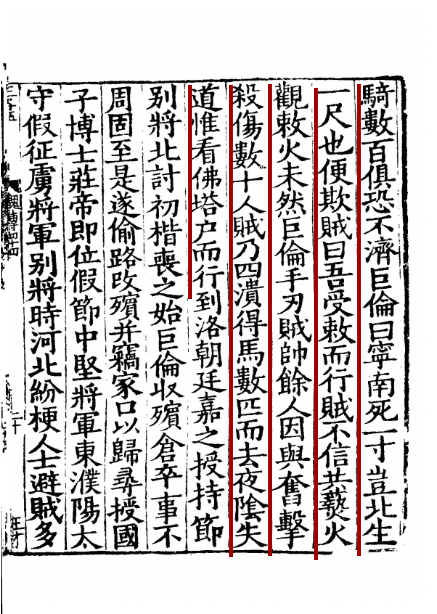 騎數百俱恐不濟巨倫曰寧南死一寸豈北生
一尺也便欺賊曰吾受敕而行賊不信共爇火
觀敕火未然巨倫手刃賊帥餘人因與奮擊
殺傷數十人賊乃四潰得馬數匹而去夜陰失
道惟看佛塔户而行到洛朝廷嘉之授持節
别將北討初楷喪之始巨倫收殯倉卒事不
周固至是遂偷路改殯并竊家口以歸尋授國
子博士莊帝即位假節中堅將軍東濮陽太
守假征虜將軍别將時河北紛梗人士避賊多